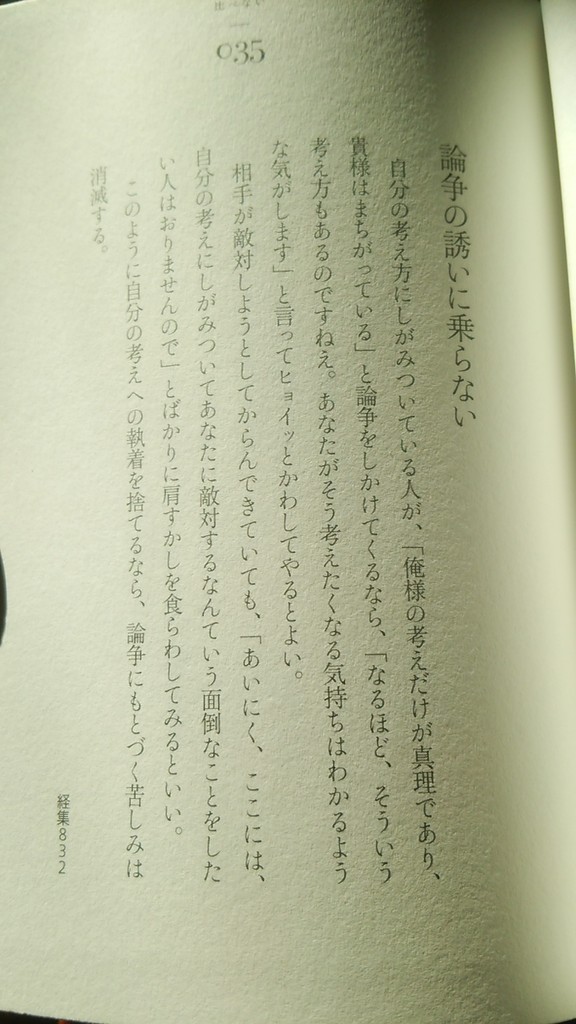 035
論争の誘いに乗らない
自分の考え方にしがみついている人が、「俺様の考えだけが真理であり、
貴様はまちがっている」と論争をしかけてくるなら、「なるほど、そういう
考え方もあるのですねえ。あなたがそう考えたくなる気持ちはわかるよう
な気がします」と言ってヒョイッとかわしてやるとよい。
相手が敵対しようとしてからんできていても、「あいにく、ここには、
自分の考えにしがみついてあなたに敵対するなんていう面倒なことをした
い人はおりませんので」とばかりに肩すかしを食らわしてみるといい。
このように自分の考えへの執着を捨てるなら、論争にもとづく苦しみは
消滅する。
経集832